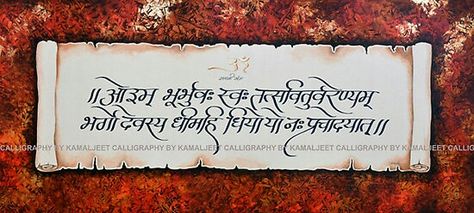 ॐ
॥ ओ३म् भूर्भुवः स्वः तत्सवितुर्वरेण्यम्
भर्गो देवस्य धीमहि धियो यो नः प्रचोदयात् ॥
CALLIGRAPHY BY KAMALJEET CALLIGRAPHY BY KAMALJEET CALLIGRAPHY BY KAMALJEET CALLIGRAPHY BY KAMALJEET CALLIGR